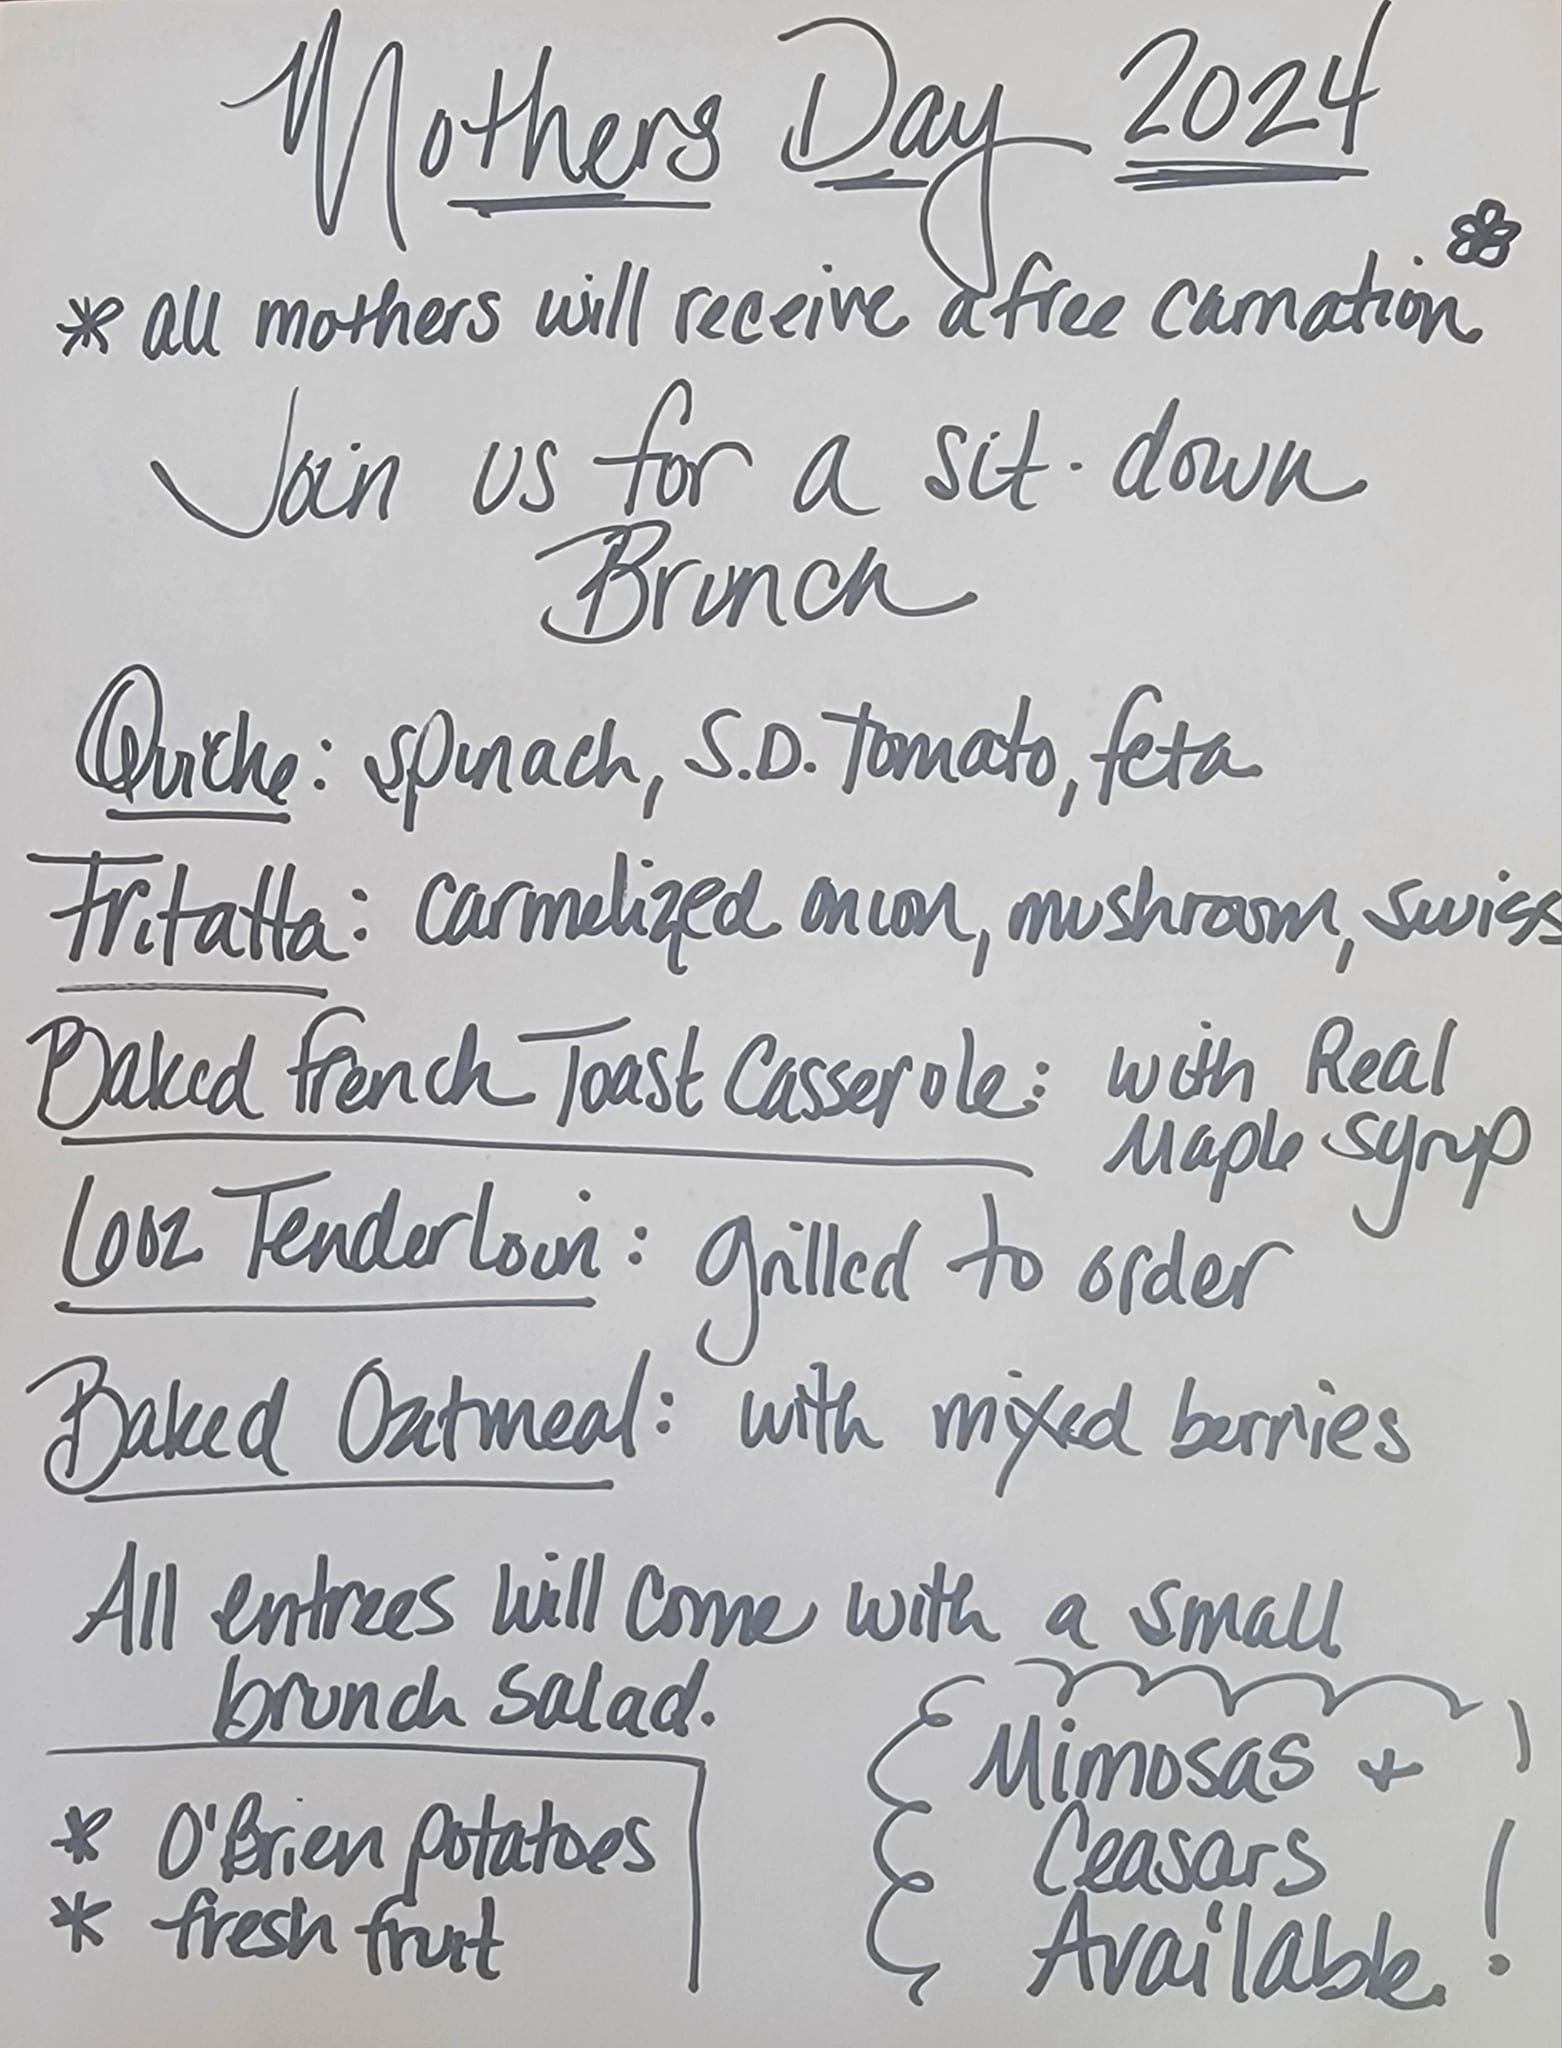 Mothers Day 2024
* all mothers will receive a free carnation
Join us for a sit-down
Brunch
Quiche: spinach, S.D. Tomato, feta
Fritatta: carmelized onion, mushroom, swiss
Baked French Toast Casserole: with Real
Maple Syrup
6oz Tenderloin: grilled to order
Baked Oatmeal: with mixed berries
All entrees will come with a small
brunch salad.
* O'Brien potatoes
* fresh fruit
Mimosas +
Ceasars
Available!